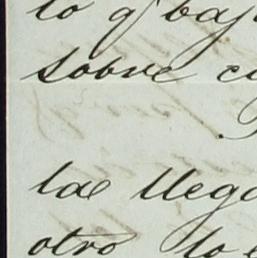 lo q^e baj
sobre c
las llega
otro lo e